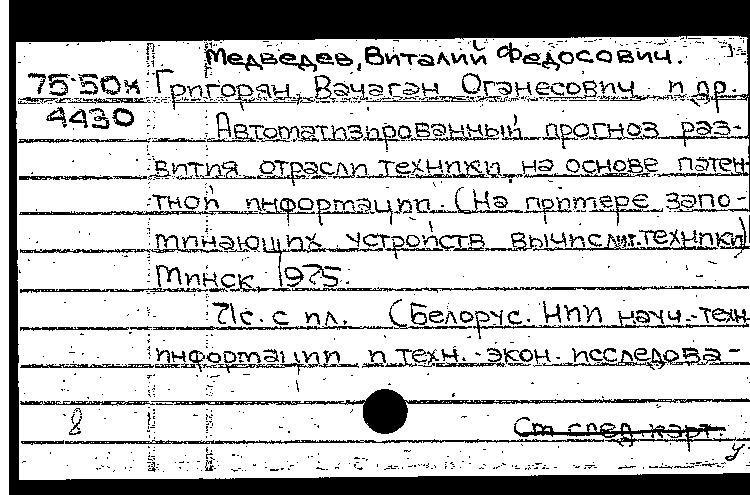 Медведев, Виталий Федосович.
75-50к Григорян, Вачаган Оганесович и др.
4430 Автоматизированный прогноз раз-
вития отрасли техники на основе патен-
тной информации. (На примере запо-
минающих устройств вычислит. техники)
Минск, 1975.
71с. с ил. (Белорус. НИИ науч.-техн.
информации и техн.-экон. исследова-
8
См след. карт.